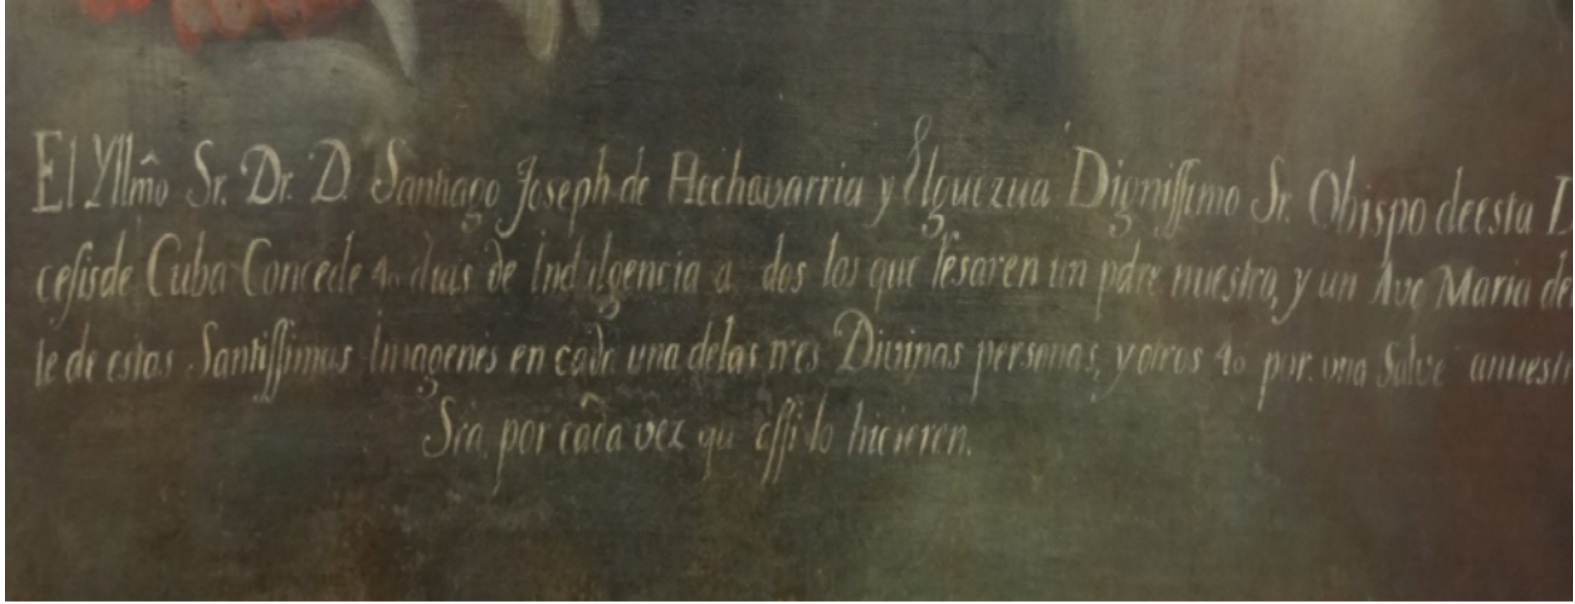 El Yllmô Sr. Dr. D. Santiago Joseph de Hechavarria y Elguezua Dignissimo Sr. Obispo deesta D
cesisde Cuba Concede 40 dias de Indulgencia a dos los que resaren un pdre nuestro, y un Ave Maria de
te de estas Santissimas Imagenes en cada una delas tres Divinas personas, y otros 40 por una Salve anuestr
Sra por cada vez qu assi lo hicieren.